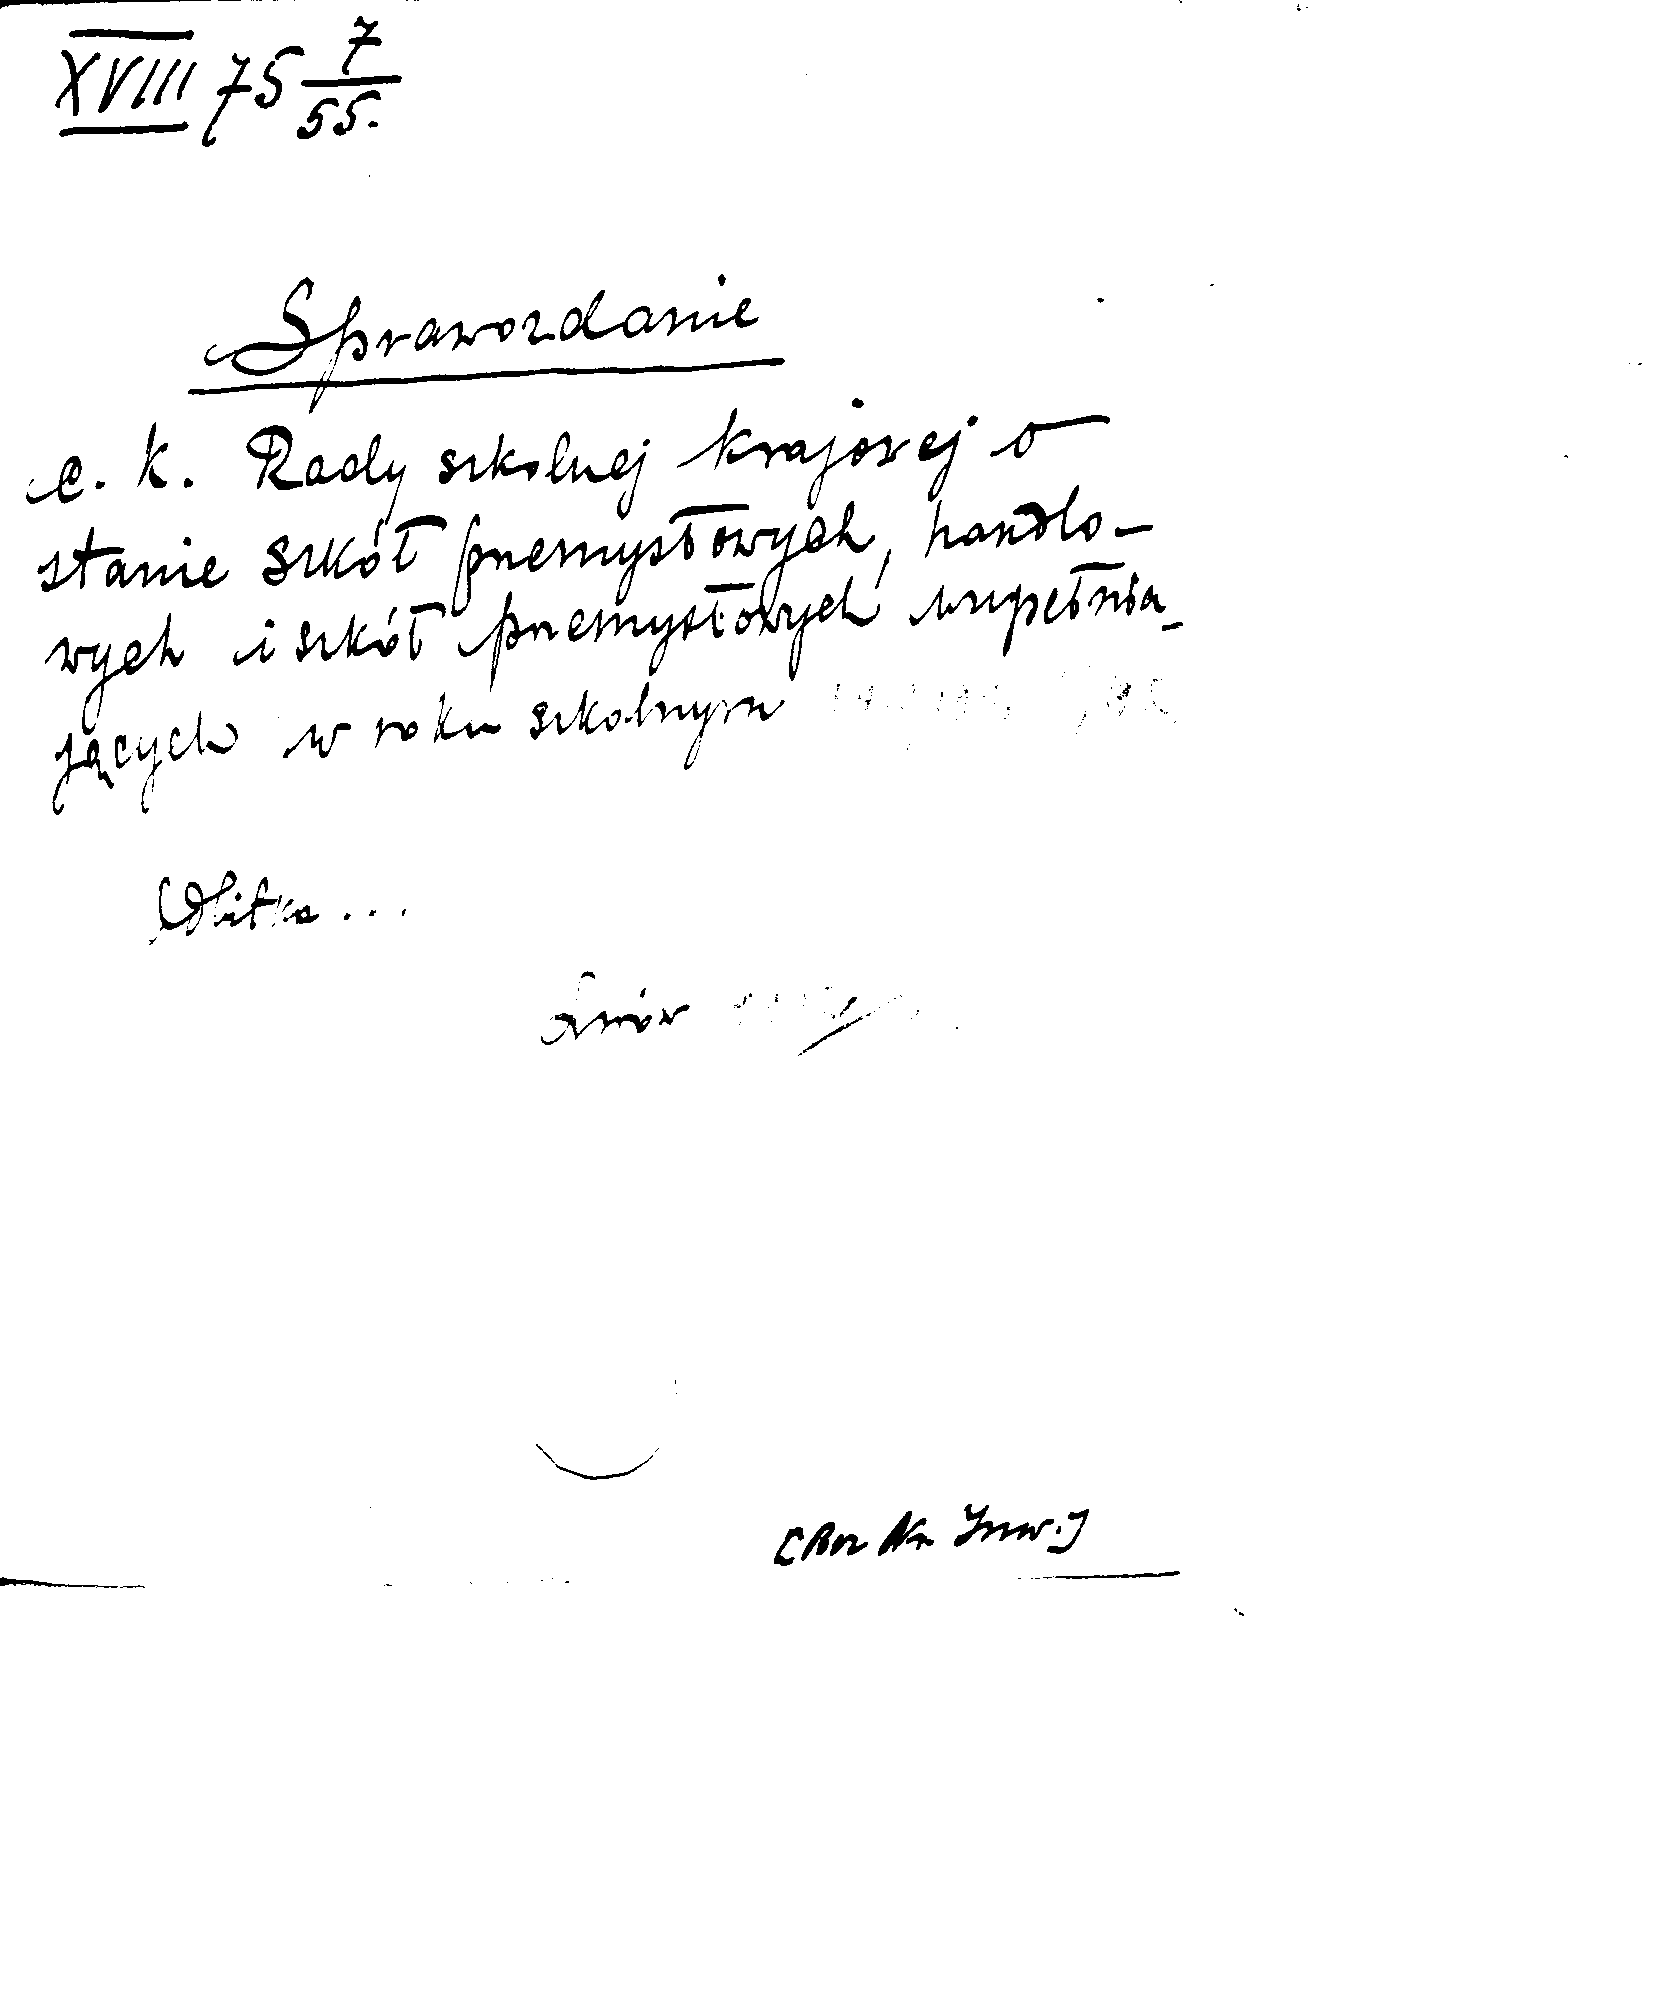 XVIII 75 7/55.
Sprawozdanie
c. k. Rady szkolnej krajowej o
stanie szkół przemysłowych, handlo-
wych i szkół przemysłowych uzupełnia-
jących w roku szkolnym
Odbitka ...
Lwów
[Bez Nr Inw.]